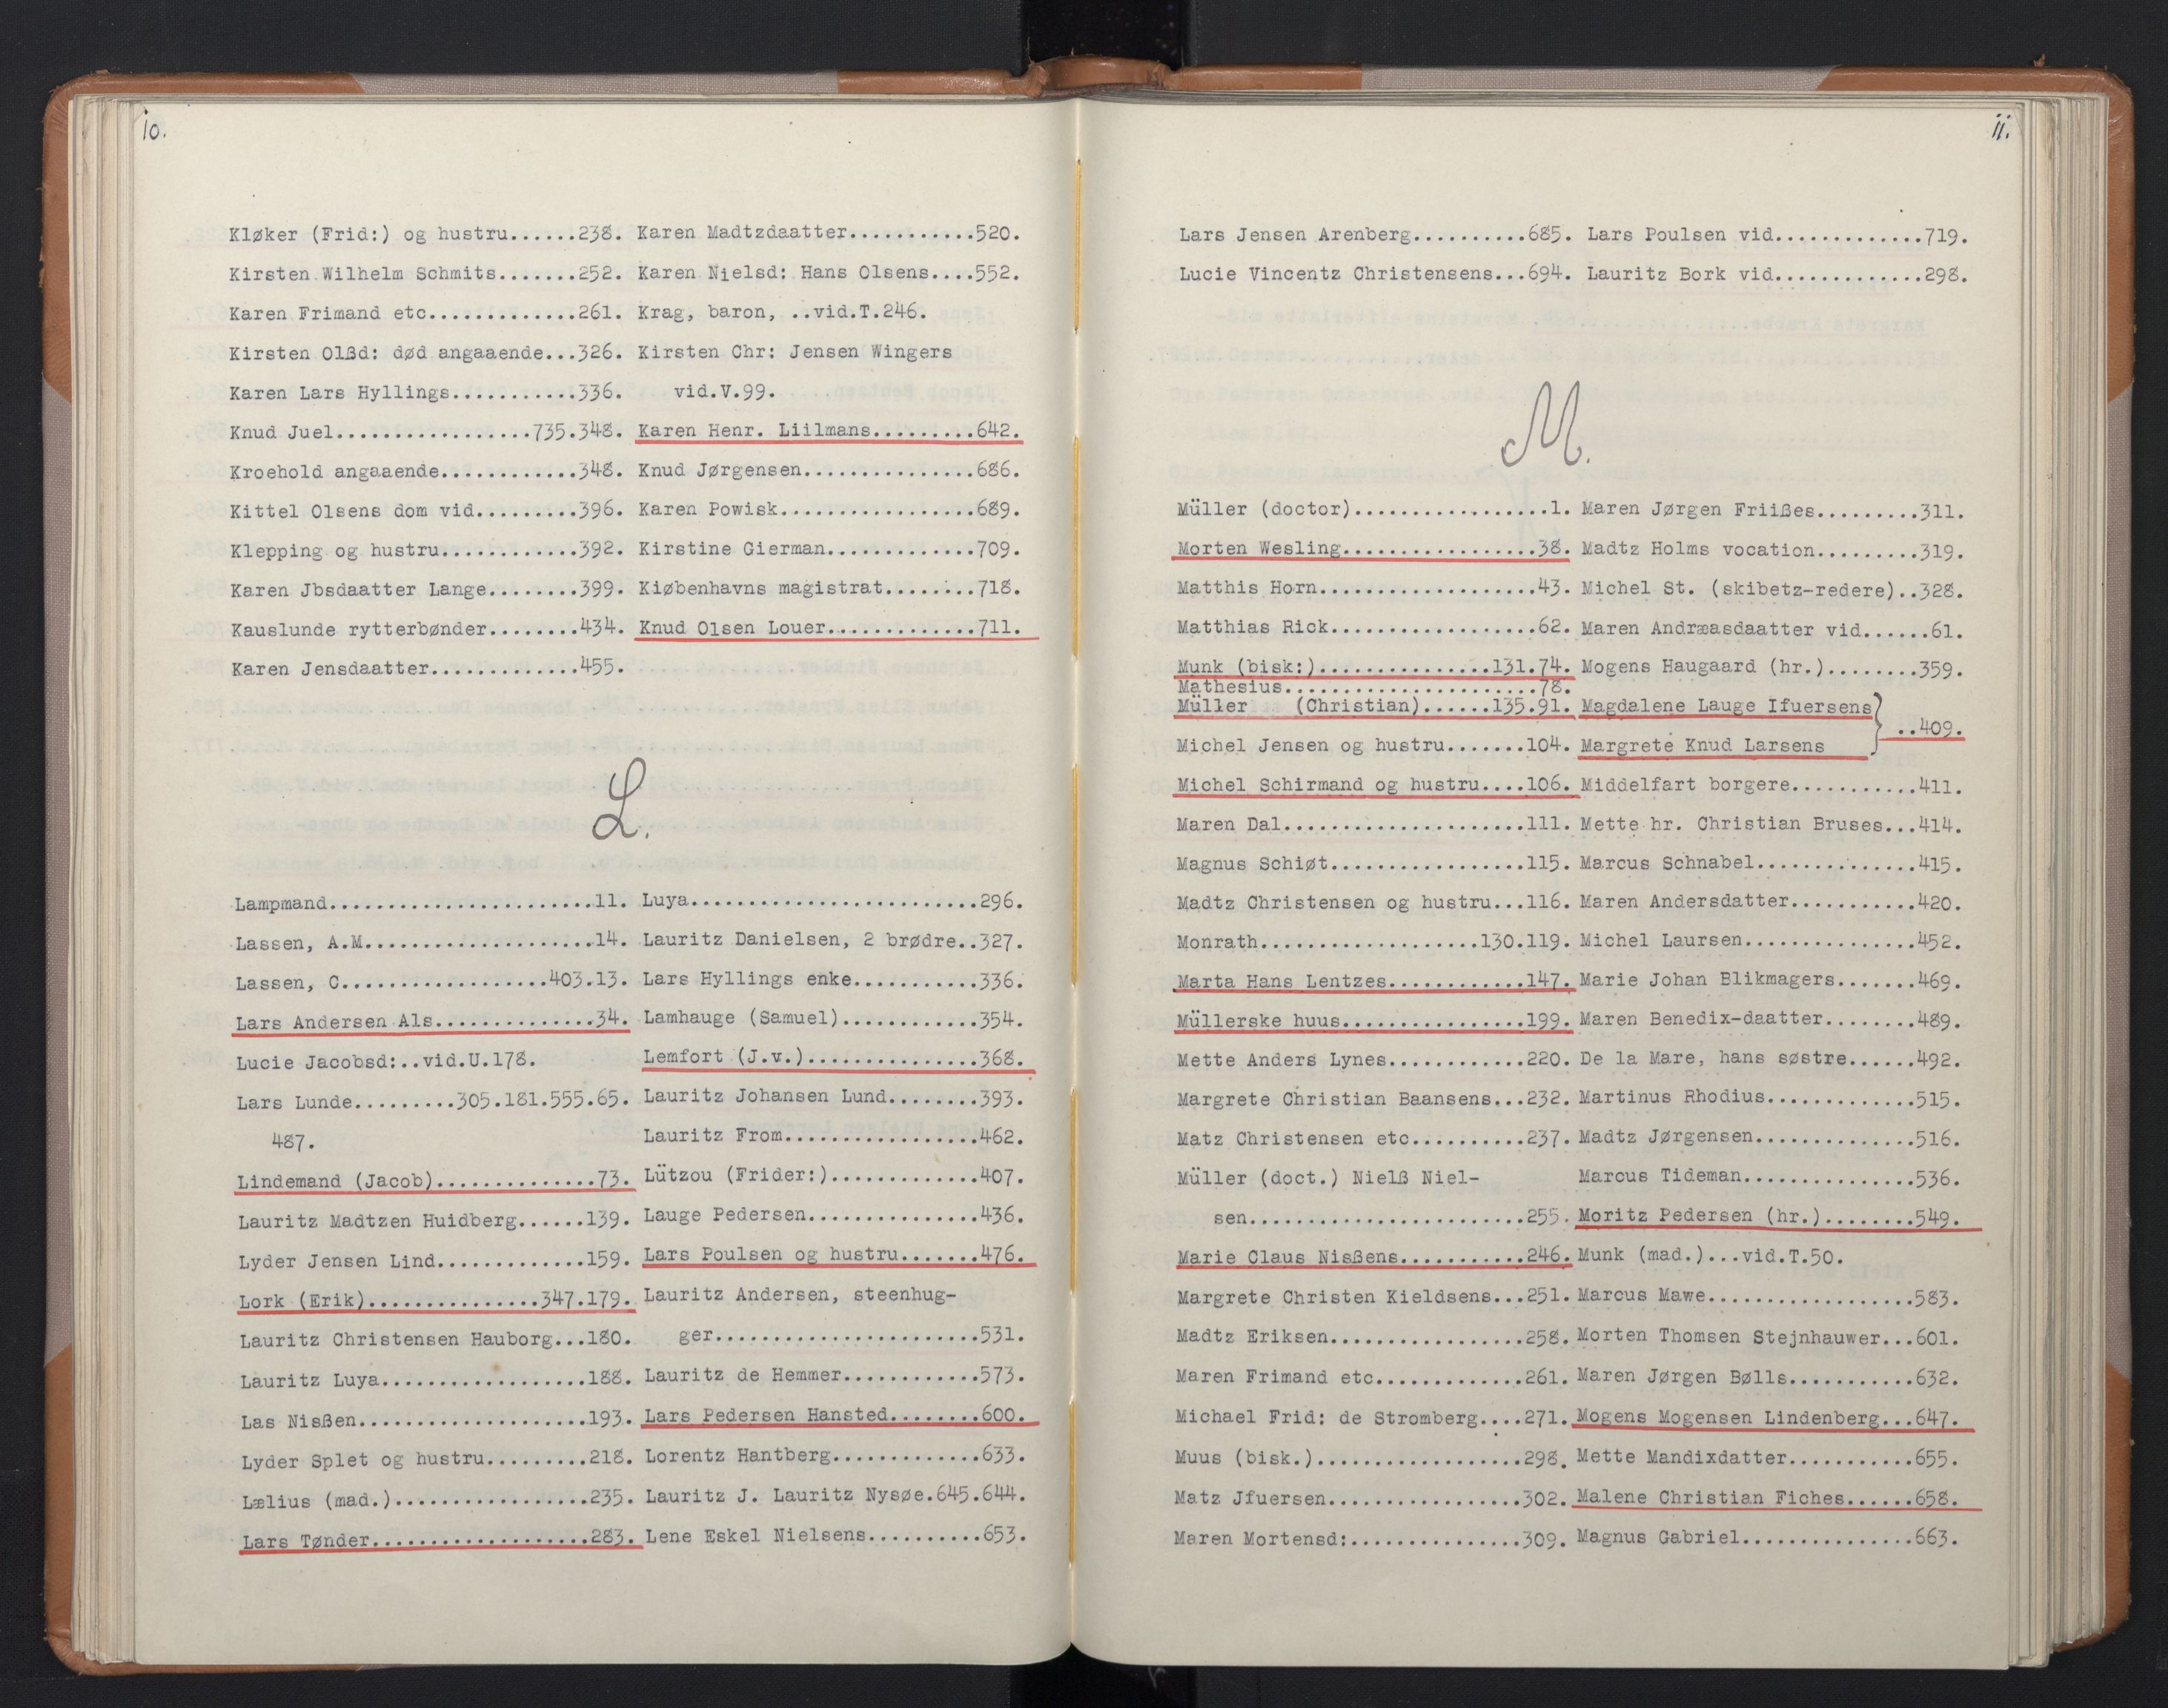 10.
Kløker (Frid:) og hustru......238.
Kirsten Wilhelm Schmits.......252.
Karen Frimand etc.............261.
Kirsten Olßd: død angaaende...326.
Karen Lars Hyllings...........336.
Knud Juel.................735.348.
Kroehold angaaende............348.
Kittel Olsens dom vid.........396.
Klepping og hustru............392.
Karen Jbsdaatter Lange........399.
Kauslunde rytterbønder........434.
Karen Jensdaatter.............455.
Karen Madtzdaatter...........520.
Karen Nielsd: Hans Olsens....552.
Krag, baron, ..vid.T.246.
Kirsten Chr: Jensen Wingers
vid.V.99.
Karen Henr. Liilmans.........642.
Knud Jørgensen...............686.
Karen Powisk.................689.
Kirstine Gierman.............709.
Kiøbenhavns magistrat........718.
Knud Olsen Louer.............711.
L.
Lampmand.......................11.
Lassen, A.M....................14.
Lassen, C..................403.13.
Lars Andersen Als..............34.
Lucie Jacobsd:..vid.U.178.
Lars Lunde.........305.181.555.65.
487.
Lindemand (Jacob)..............73.
Lauritz Madtzen Huidberg......139.
Lyder Jensen Lind.............159.
Lork (Erik)...............347.179.
Lauritz Christensen Hauborg...180.
Lauritz Luya..................188.
Las Nißen.....................193.
Lyder Splet og hustru.........218.
Lælius (mad.).................235.
Lars Tønder...................283.
Luya.........................296.
Lauritz Danielsen, 2 brødre..327.
Lars Hyllings enke...........336.
Lamhauge (Samuel)............354.
Lemfort (J.v.)...............368.
Lauritz Johansen Lund........393.
Lauritz From.................462.
Lützou (Frider:).............407.
Lauge Pedersen...............436.
Lars Poulsen og hustru.......476.
Lauritz Andersen, steenhug-
ger.......................531.
Lauritz de Hemmer............573.
Lars Pedersen Hansted........600.
Lorentz Hantberg.............633.
Lauritz J. Lauritz Nysøe.645.644.
Lene Eskel Nielsens..........653.
11.
Lars Jensen Arenberg..........685.
Lucie Vincentz Christensens...694.
Lars Poulsen vid.............719.
Lauritz Bork vid.............298.
M.
Müller (doctor).................1.
Morten Wesling.................38.
Matthis Horn...................43.
Matthias Rick..................62.
Munk (bisk:)...............131.74.
Mathesius......................78.
Müller (Christian)......135.91.
Michel Jensen og hustru.......104.
Michel Schirmand og hustru....106.
Maren Dal.....................111.
Magnus Schiøt.................115.
Madtz Christensen og hustru...116.
Monrath...................130.119.
Marta Hans Lentzes............147.
Müllerske huus................199.
Mette Anders Lynes............220.
Margrete Christian Baansens...232.
Matz Christensen etc..........237.
Müller (doct.) Nielß Niel-
sen........................255.
Marie Claus Nißens............246.
Margrete Christen Kieldsens...251.
Madtz Eriksen.................258.
Maren Frimand etc.............261.
Michael Frid: de Stromberg....271.
Muus (bisk.)..................298.
Matz Jfuersen.................302.
Maren Mortensd:...............309.
Maren Jørgen Friißes.........311.
Madtz Holms vocation.........319.
Michel St. (skibetz-redere)..328.
Maren Andræasdaatter vid......61.
Mogens Haugaard (hr.)........359.
Magdalene Lauge Ifuersens
Margrete Knud Larsens } ..409.
Middelfart borgere...........411.
Mette hr. Christian Bruses...414.
Marcus Schnabel..............415.
Maren Andersdatter...........420.
Michel Laursen...............452.
Marie Johan Blikmagers.......469.
Maren Benedix-daatter........489.
De la Mare, hans søstre......492.
Martinus Rhodius.............515.
Madtz Jørgensen..............516.
Marcus Tideman...............536.
Moritz Pedersen (hr.)........549.
Munk (mad.)...vid.T.50.
Marcus Mawe..................583.
Morten Thomsen Stejnhauwer...601.
Maren Jørgen Bølls...........632.
Mogens Mogensen Lindenberg...647.
Mette Mandixdatter...........655.
Malene Christian Fiches......658.
Magnus Gabriel...............663.